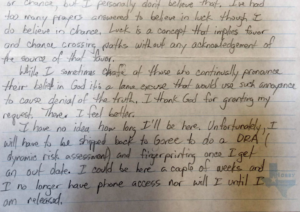 or chance, but I personally don't believe that. I've had
too many prayers answered to believe in luck though I
do believe in chance. Luck is a concept that implies favor
and chance crossing paths without any acknowledgement of
the source of that favor.
While I sometimes chafe at those who continually pronounce
their belief in God it's a lame excuse that would use such annoyance
to cause denial of the truth. I thank God for granting my
request. There, I feel better.
I have no idea how long I'll be here. Unfortunately, I
will have to be shipped back to to do a DRA (
dynamic risk assessment) and fingerprinting once I get
an out date. I could be here a couple of weeks and
I no longer have phone access nor will I until I
am released.